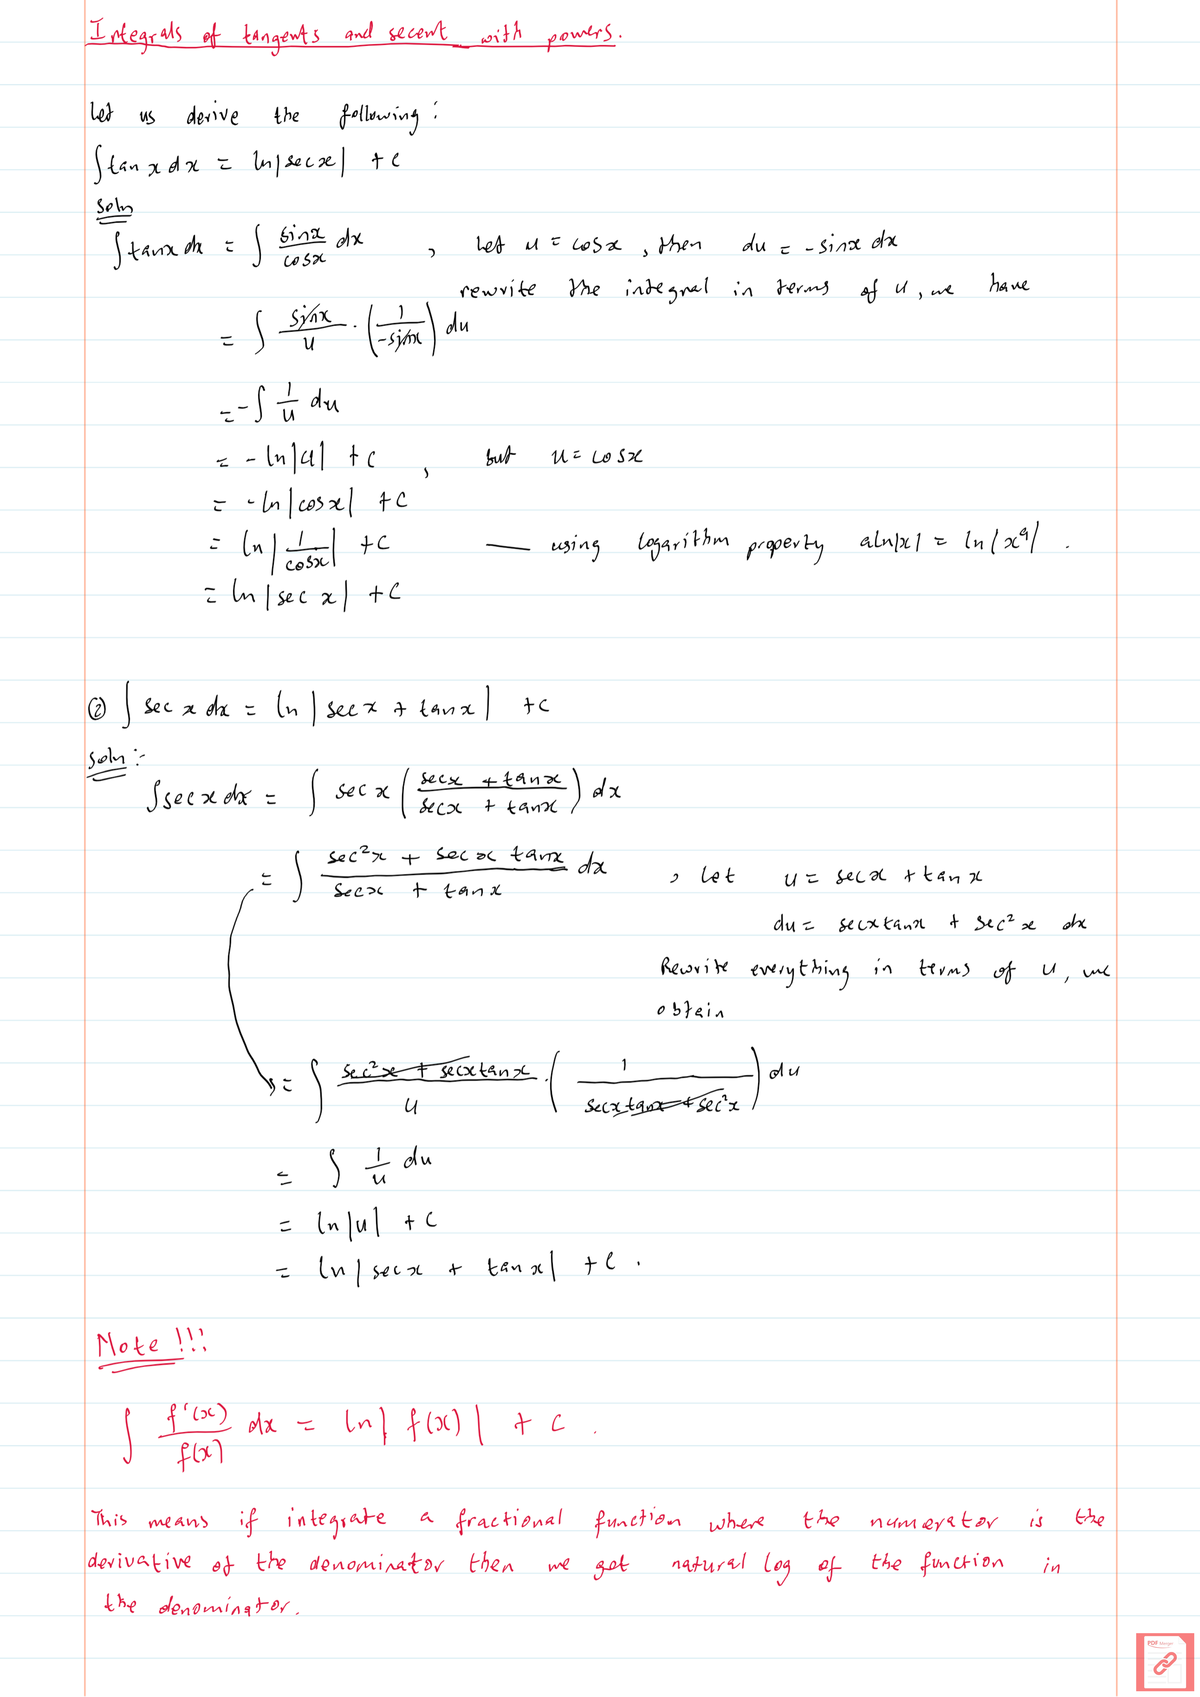 Integrals of tangents and secent with powers.
Let us derive the following:
∫tan x dx = ln|sec x| + c
Soln
∫tanx dx = ∫ sinx/cosx dx , Let u = cosx , then du = -sinx dx
rewrite the integral in terms of u, we have
= ∫ sinx/u · (1/-sinx) du
= -∫ 1/u du
= -ln|u| + c , but u = cosx
= -ln|cosx| + c
= ln|1/cosx| + c — using logarithm property aln|x| = ln|x^a| .
= ln|sec x| + c
② ∫ sec x dx = ln|sec x + tanx| + c
Soln :-
∫sec x dx = ∫ sec x (secx + tanx / secx + tanx) dx
= ∫ sec²x + secx tanx / secx + tanx dx , Let u = secx + tan x
du = secxtanx + sec²x dx
Rewrite everything in terms of u, we
obtain
= ∫ sec²x + secxtanx / u · (1 / secxtanx + sec²x) du
= ∫ 1/u du
= ln|u| + c
= ln|secx + tan x| + c .
Note !!!
∫ f'(x)/f(x) dx = ln|f(x)| + c .
This means if integrate a fractional function where the numerator is the
derivative of the denominator then we get natural log of the function in
the denominator.
PDF